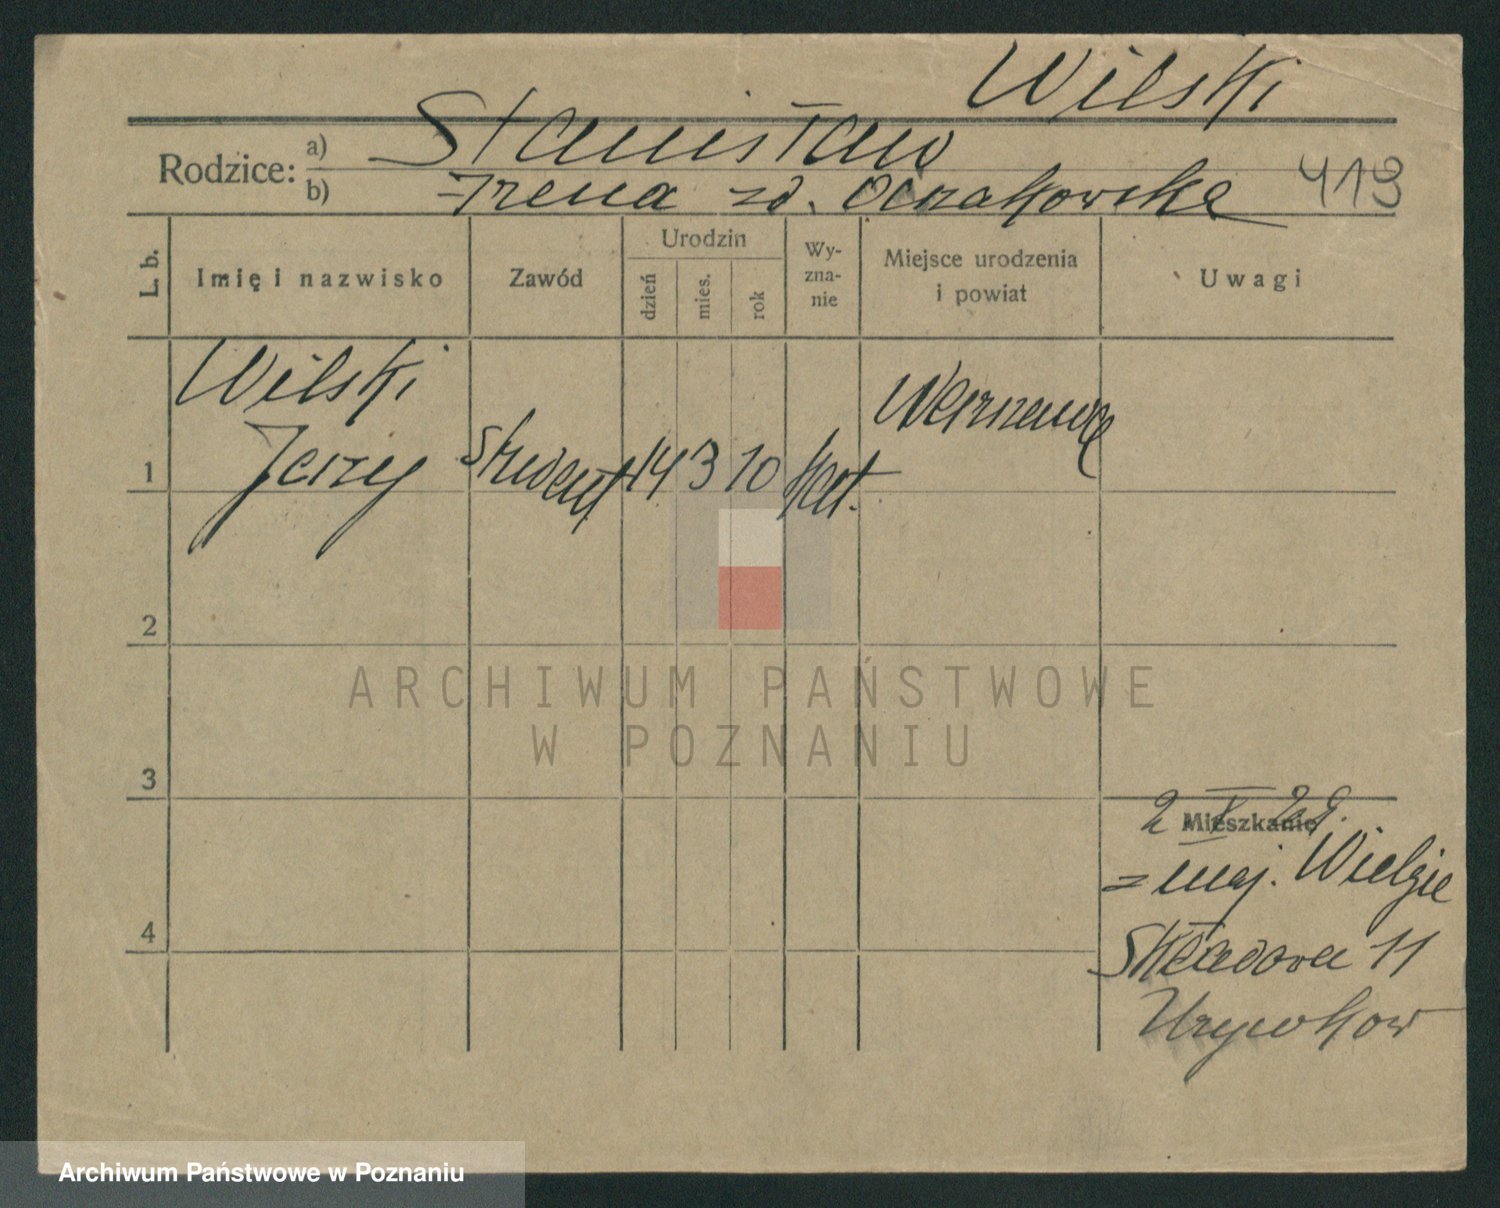 Wilski
Rodzice: a) Stanisław
b) Irena zd. Oczakowska 413
L. b. Imię i nazwisko Zawód Urodzin dzień mies. rok Wy-zna-nie Miejsce urodzenia i powiat Uwagi
Wilski Warszawa
1 Jerzy Student 14 3 10 kat.
2
3
2 X 29.
Mieszkanie
= maj. Wielgie
4
Składowa 11
ARCHIWUM PAŃSTWOWE
W POZNANIU
Archiwum Państwowe w Poznaniu